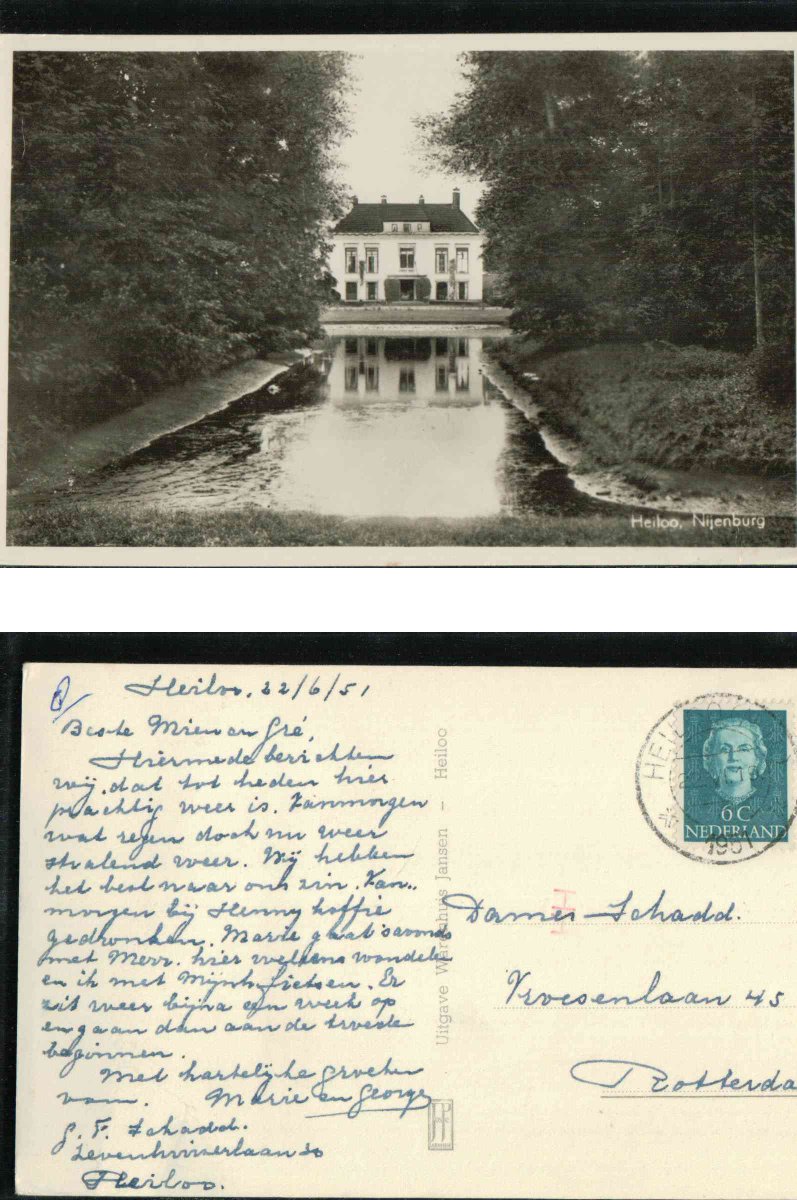 Heiloo, Nijenburg
Heiloo, 22/6/51
Beste Mien en Gré,
Hiermede berichten
wij, dat tot heden hier
prachtig weer is. Vanmorgen
wat regen doch nu weer
stralend weer. Wij hebben
het best naar ons zin. Van-
morgen bij Henny koffie
gedronken. Marie gaat 's avonds
met Mevr. hier wandelen
en ik met Mijnh. fietsen. Er
zit weer bijna een week op
en gaan dan aan de tweede
beginnen.
Met hartelijke groeten
van. Marie en George
G. F. Schadd.
Heiloo.
Uitgave Warenhuis Jansen - Heiloo
HEILOO
1951
6 C
NEDERLAND
Dames Schadd.
Vroesenlaan 45
Rotterda